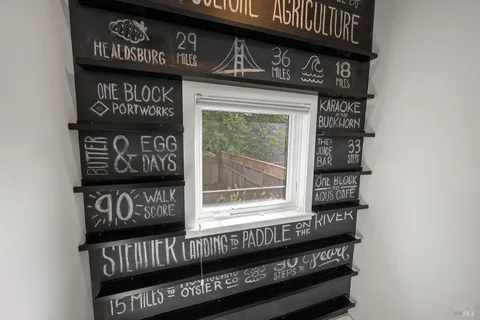 AGRICULTURE
HEALDSBURG
29
MILES
36
MILES
18
MILES
ONE BLOCK
PORTWORKS
KARAOKE
BUCKHORN
BUTTER
& EGG
DAYS
THE
JUICE
BAR
33
STEPS
90 WALK
SCORE
ONE BLOCK
AQUS CAFÉ
STEAMER LANDING TO PADDLE ON THE RIVER
15 MILES TO HOG ISLAND
OYSTER CO
90
STEPS TO Pearl